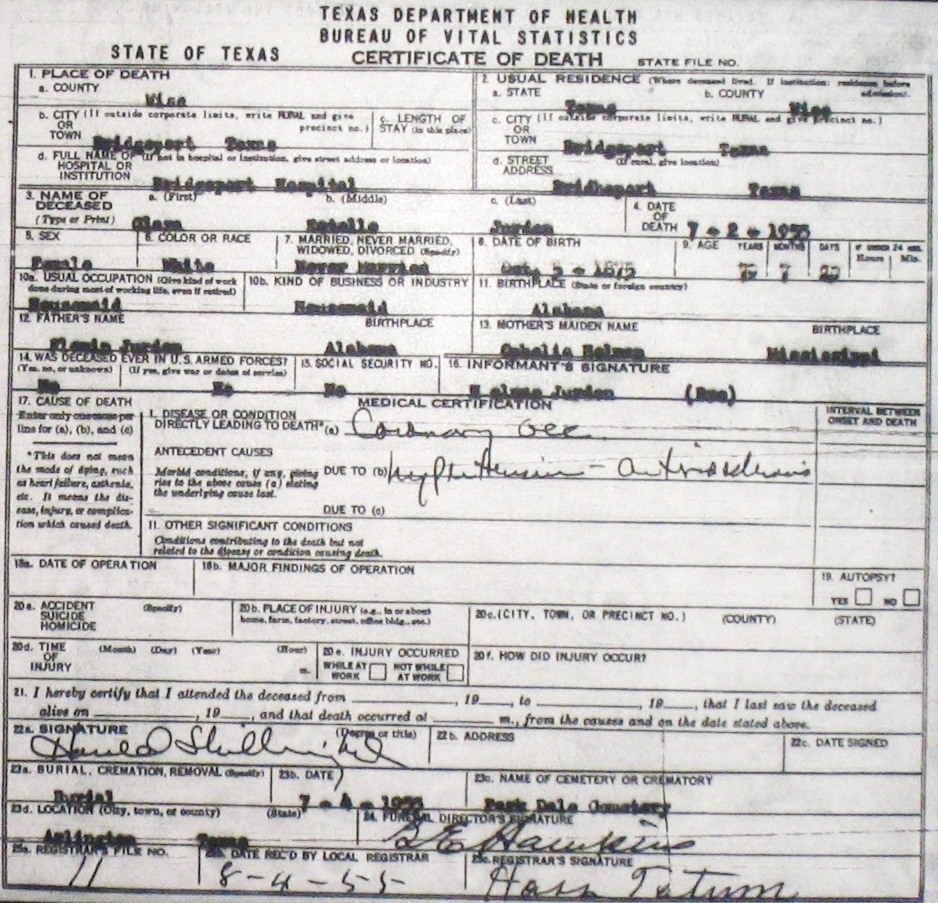 TEXAS DEPARTMENT OF HEALTH
BUREAU OF VITAL STATISTICS
STATE OF TEXAS CERTIFICATE OF DEATH STATE FILE NO.
1. PLACE OF DEATH
a. COUNTY
Wise
2. USUAL RESIDENCE (Where deceased lived. If institution: residence before admission).
a. STATE b. COUNTY
Texas Wise
b. CITY (If outside corporate limits, write RURAL and give precinct no.)
OR
TOWN
Bridgeport Texas
c. LENGTH OF
STAY (in this place)
c. CITY (If outside corporate limits, write RURAL and give precinct no.)
OR
TOWN
Bridgeport Texas
d. FULL NAME OF (If not in hospital or institution, give street address or location)
HOSPITAL OR
INSTITUTION
Bridgeport Hospital
d. STREET (If rural, give location)
ADDRESS
Bridheport Texas
3. NAME OF
DECEASED
(Type or Print)
a. (First) b. (Middle) c. (Last)
Estelle Jurden
4. DATE
OF
DEATH 7 - 2 - 1955
5. SEX
Female
6. COLOR OR RACE
White
7. MARRIED, NEVER MARRIED,
WIDOWED, DIVORCED (Specify)
Never Married
8. DATE OF BIRTH
Oct. 5 - 1875
9. AGE YEARS MONTHS DAYS IF UNDER 24 HRS.
Hours Min.
10a. USUAL OCCUPATION (Give kind of work
done during most of working life, even if retired)
Housemaid
10b. KIND OF BUSINESS OR INDUSTRY
Housemaid
11. BIRTHPLACE (State or foreign country)
Alabama
12. FATHER'S NAME BIRTHPLACE
Jurden Alabama
13. MOTHER'S MAIDEN NAME BIRTHPLACE
Ophelia Mississippi
14. WAS DECEASED EVER IN U.S. ARMED FORCES?
(Yes, no, or unknown) (If yes, give war or dates of service)
No No
15. SOCIAL SECURITY NO.
No
16. INFORMANT'S SIGNATURE
Jurden
17. CAUSE OF DEATH
Enter only one cause per
line for (a), (b), and (c)
*This does not mean
the mode of dying, such
as heart failure, asthenia,
etc. It means the dis-
ease, injury, or complica-
tion which caused death.
MEDICAL CERTIFICATION
I. DISEASE OR CONDITION
DIRECTLY LEADING TO DEATH* (a) Coronary occ.
ANTECEDENT CAUSES
Morbid conditions, if any, giving
rise to the above cause (a) stating
the underlying cause last.
DUE TO (b)
DUE TO (c)
11. OTHER SIGNIFICANT CONDITIONS
Conditions contributing to the death but not
related to the disease or condition causing death.
INTERVAL BETWEEN
ONSET AND DEATH
18a. DATE OF OPERATION
18b. MAJOR FINDINGS OF OPERATION
19. AUTOPSY?
YES NO
20a. ACCIDENT (Specify)
SUICIDE
HOMICIDE
20b. PLACE OF INJURY (e.g., in or about
home, farm, factory, street, office bldg., etc.)
20c. (CITY, TOWN, OR PRECINCT NO.) (COUNTY) (STATE)
20d. TIME (Month) (Day) (Year) (Hour)
OF
INJURY m.
20e. INJURY OCCURRED
WHILE AT NOT WHILE
WORK AT WORK
20f. HOW DID INJURY OCCUR?
21. I hereby certify that I attended the deceased from , 19 , to , 19 , that I last saw the deceased
alive on , 19 , and that death occurred at m., from the causes and on the date stated above.
22a. SIGNATURE (Degree or title)
22b. ADDRESS
22c. DATE SIGNED
23a. BURIAL, CREMATION, REMOVAL (Specify)
Burial
23b. DATE
7 - 4 - 1955
23c. NAME OF CEMETERY OR CREMATORY
Park Dale Cemetery
23d. LOCATION (City, town, or county) (State)
Arlington Texas
24. FUNERAL DIRECTOR'S SIGNATURE
B E Hawkins
25a. REGISTRAR'S FILE NO.
11
25b. DATE REC'D BY LOCAL REGISTRAR
8-4-55
25c. REGISTRAR'S SIGNATURE
Tatum